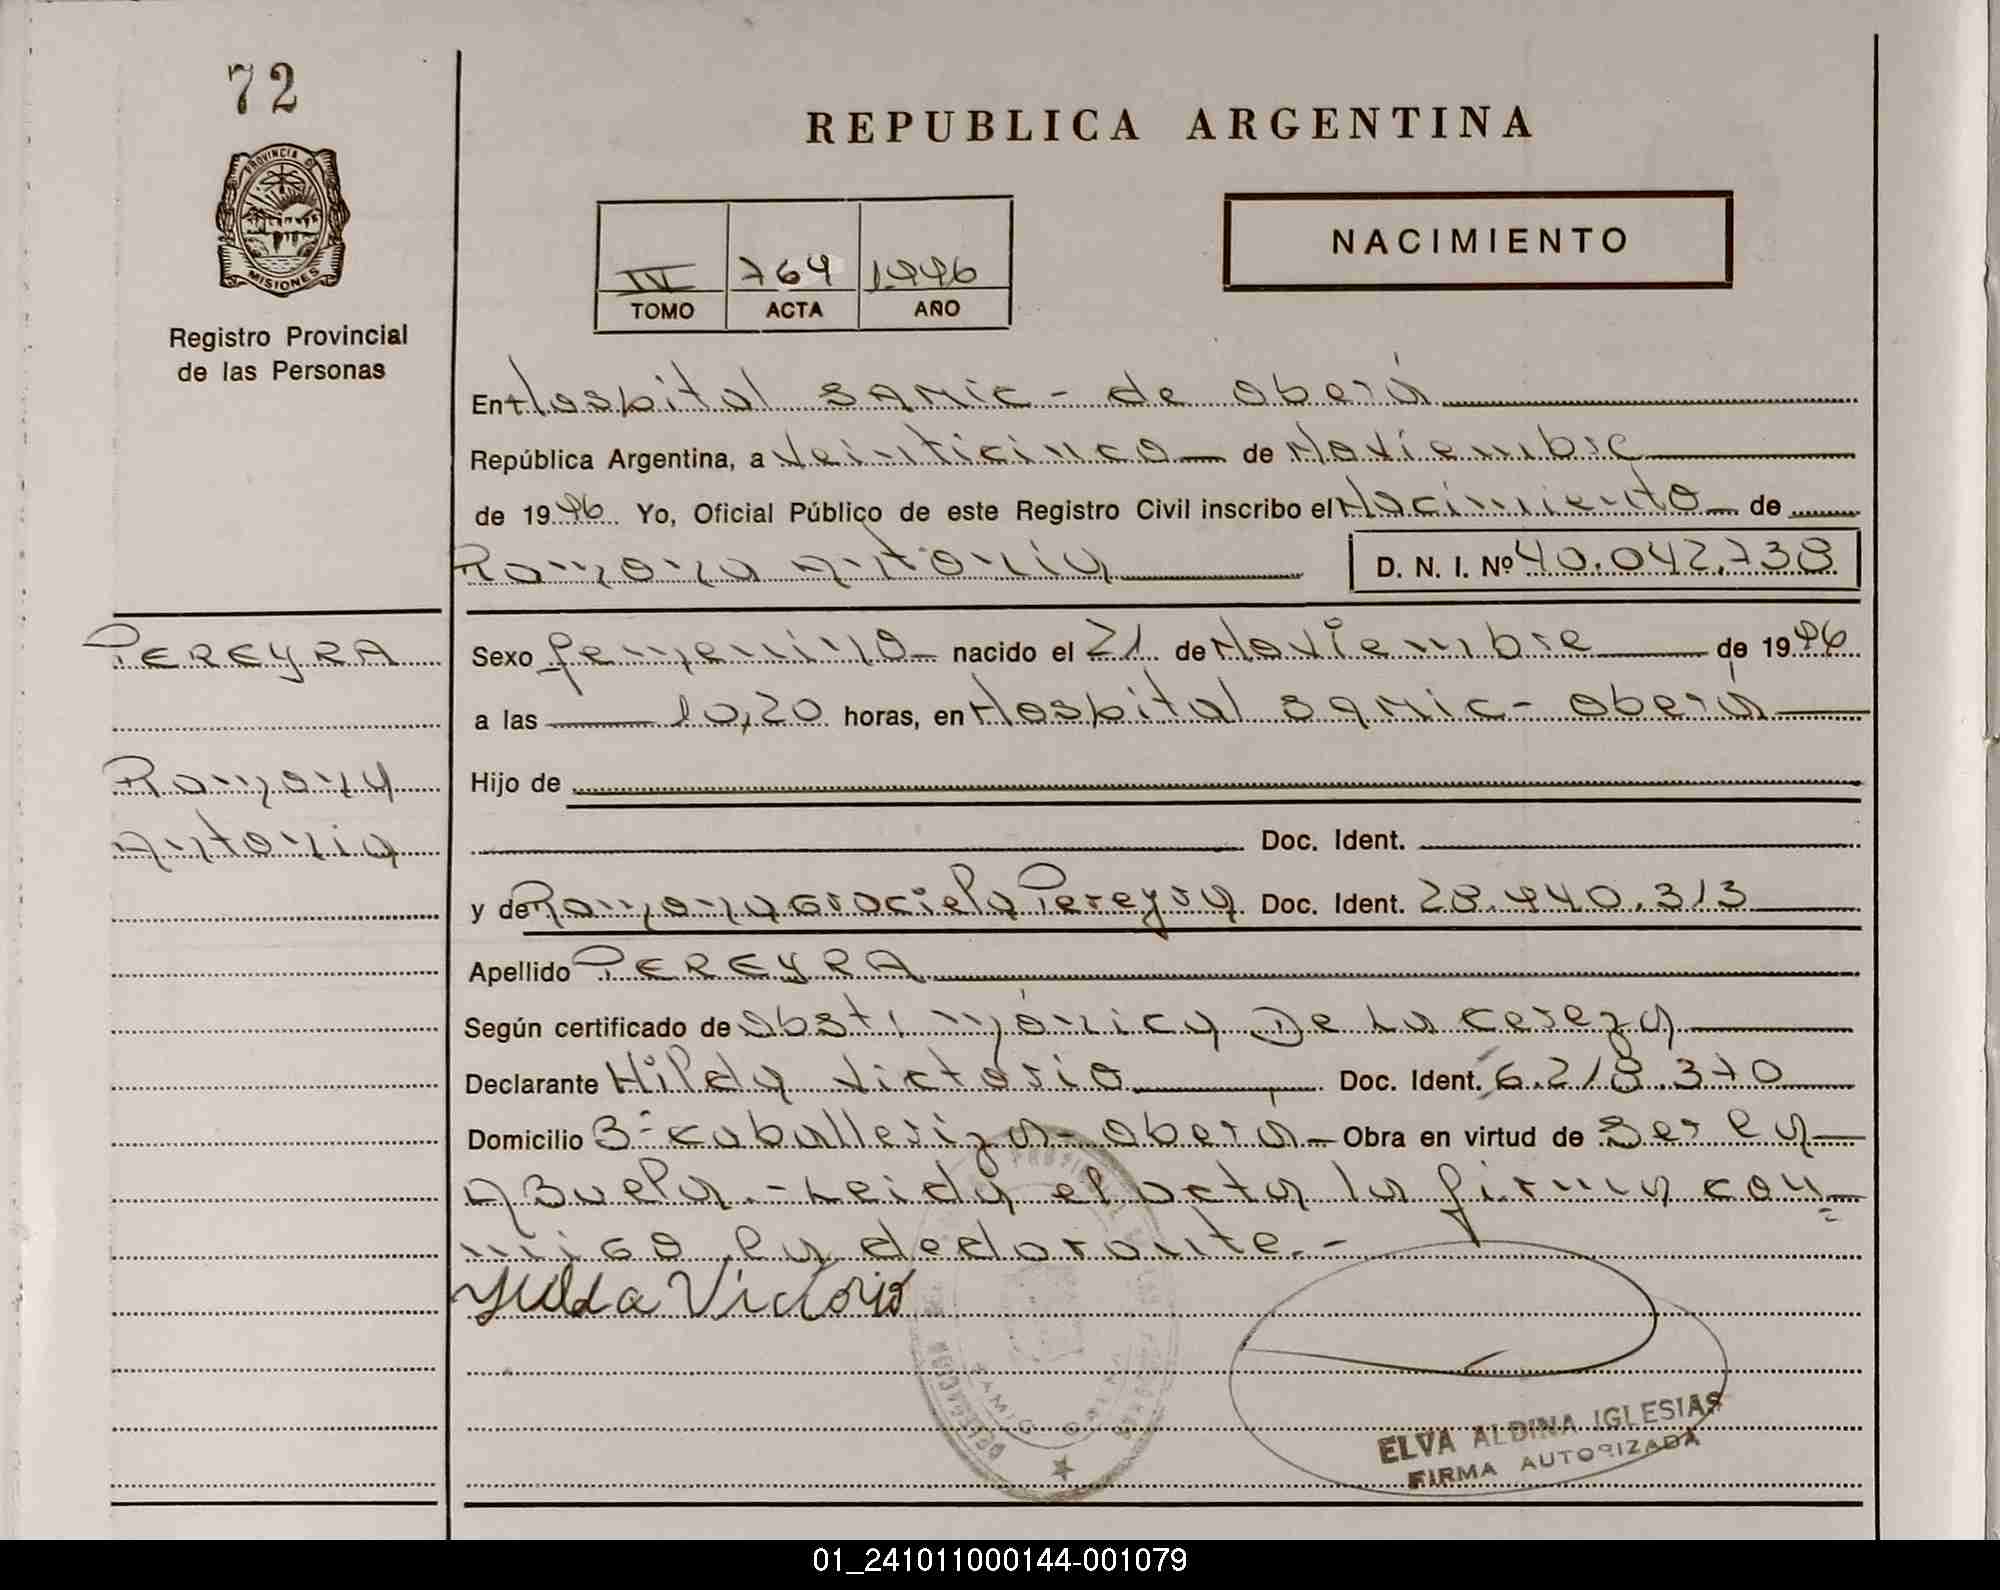 72
REPUBLICA ARGENTINA
PROVINCIA DE
MISIONES
NACIMIENTO
III 764 1996
TOMO ACTA AÑO
Registro Provincial
de las Personas
En Hospital SAMIC - de oberá
República Argentina, a Veinticinco de Noviembre
de 1996 Yo, Oficial Público de este Registro Civil inscribo el Nacimiento de
Ramona Antonia D. N. I. Nº 40.042.738
PEREYRA
Sexo femenino nacido el 21 de Noviembre de 1996
a las 10,20 horas, en Hospital SAMIC - oberá
Ramona
Antonia
Hijo de
Doc. Ident.
y de Ramona Graciela Pereyra Doc. Ident. 28.940.313
Apellido PEREYRA
Según certificado de obst. Mónica De La
Declarante Hilda Victorio Doc. Ident. 6.218.370
Domicilio 3- caballeriza - oberá - Obra en virtud de ser la
Abuela.- Leida el acta la firma con=
migo la declarante.-
Hilda Victorio
SAMIC OBERA
ELVA ALDINA IGLESIAS
FIRMA AUTORIZADA
01_241011000144-001079